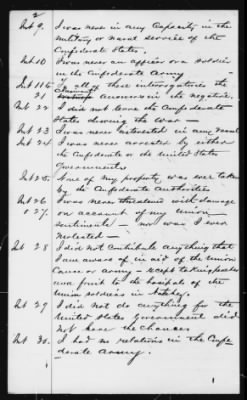 2
Int 9. I was never in any Capacity in the
Military or Naval service of the
Confederate States.
Int 10 I was never an officer or a soldier
in the Confederate Army
Int 11 to To all of these interrogatories the
21 answer in the negative.
Int 22 I did not leave the Confederate
States during the War —
Int 23 I was never interested in any
Int 24 I was never arrested by either
the Confederate or the United States
Governments
Int 25. None of my property was ever taken
by the Confederate authorities
Int 26 I was never threatened with damage
& 27. on account of my Union
sentiments — nor was I ever
molested —
Int 28 I did not Contribute anything that
I am aware of in aid of the Union
Cause or army — except taking
and fruit to the hospital of the
Union soldiers in Natchez.
Int 29 I did not do anything for the
United States Government did
not have the chances
Int 30. I had no relations in the Confe-
derate Army.